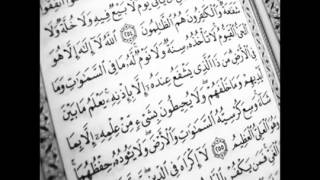 يَأْتِىَ يَوْمٌ لَّا بَيْعٌ فِيهِ وَلَا خُلَّةٌ وَلَا
شَفَٰعَةٌ وَٱلْكَٰفِرُونَ هُمُ ٱلظَّٰلِمُونَ ٢٥٤ ٱللَّهُ لَآ إِلَٰهَ إِلَّا هُوَ
ٱلْحَىُّ ٱلْقَيُّومُ لَا تَأْخُذُهُۥ سِنَةٌ وَلَا نَوْمٌ لَّهُۥ مَا فِى ٱلسَّمَٰوَٰتِ وَمَا
ٱلْأَرْضِ مَن ذَا ٱلَّذِى يَشْفَعُ عِندَهُۥٓ إِلَّا بِإِذْنِهِۦ يَعْلَمُ مَا بَيْنَ
أَيْدِيهِمْ وَمَا خَلْفَهُمْ وَلَا يُحِيطُونَ بِشَىْءٍ مِّنْ عِلْمِهِۦٓ إِلَّا بِمَا
شَآءَ وَسِعَ كُرْسِيُّهُ ٱلسَّمَٰوَٰتِ وَٱلْأَرْضَ وَلَا يَـُٔودُهُۥ حِفْظُهُمَا
وَهُوَ ٱلْعَلِىُّ ٱلْعَظِيمُ ٢٥٥ لَآ إِكْرَاهَ فِى ٱلدِّينِ
ٱلْغَىِّ فَمَن يَكْفُرْ